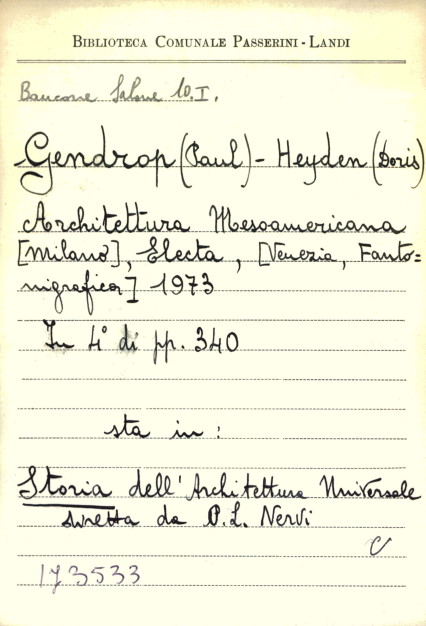 BIBLIOTECA COMUNALE PASSERINI - LANDI
Bancone Salone 10.I.
Gendrop (Paul) - Heyden (Doris)
Architettura Mesoamericana
[Milano], Electa, [Venezia, Fanto=
nigrafica] 1973
In 4° di pp. 340
sta in :
Storia dell'Architettura Universale
diretta da P.L. Nervi
C
173533